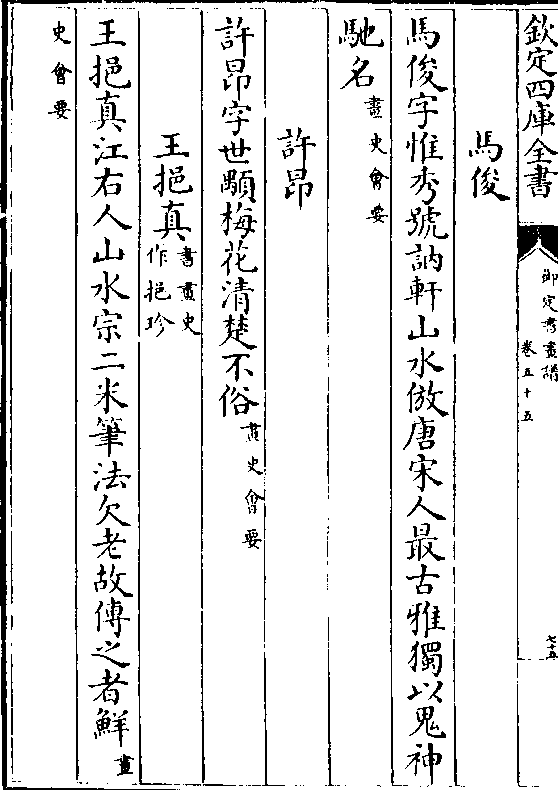 欽定四庫全書
御定書畫譜
卷五十五
七十五
馬俊
馬俊字惟秀號訥軒山水倣唐宋人最古雅獨以鬼神
馳名畫史會要
許昂
許昂字世顒梅花清楚不俗畫史會要
王挹真書畫史作挹珍
王挹真江右人山水宗二米筆法欠老故傳之者鮮畫
史會要